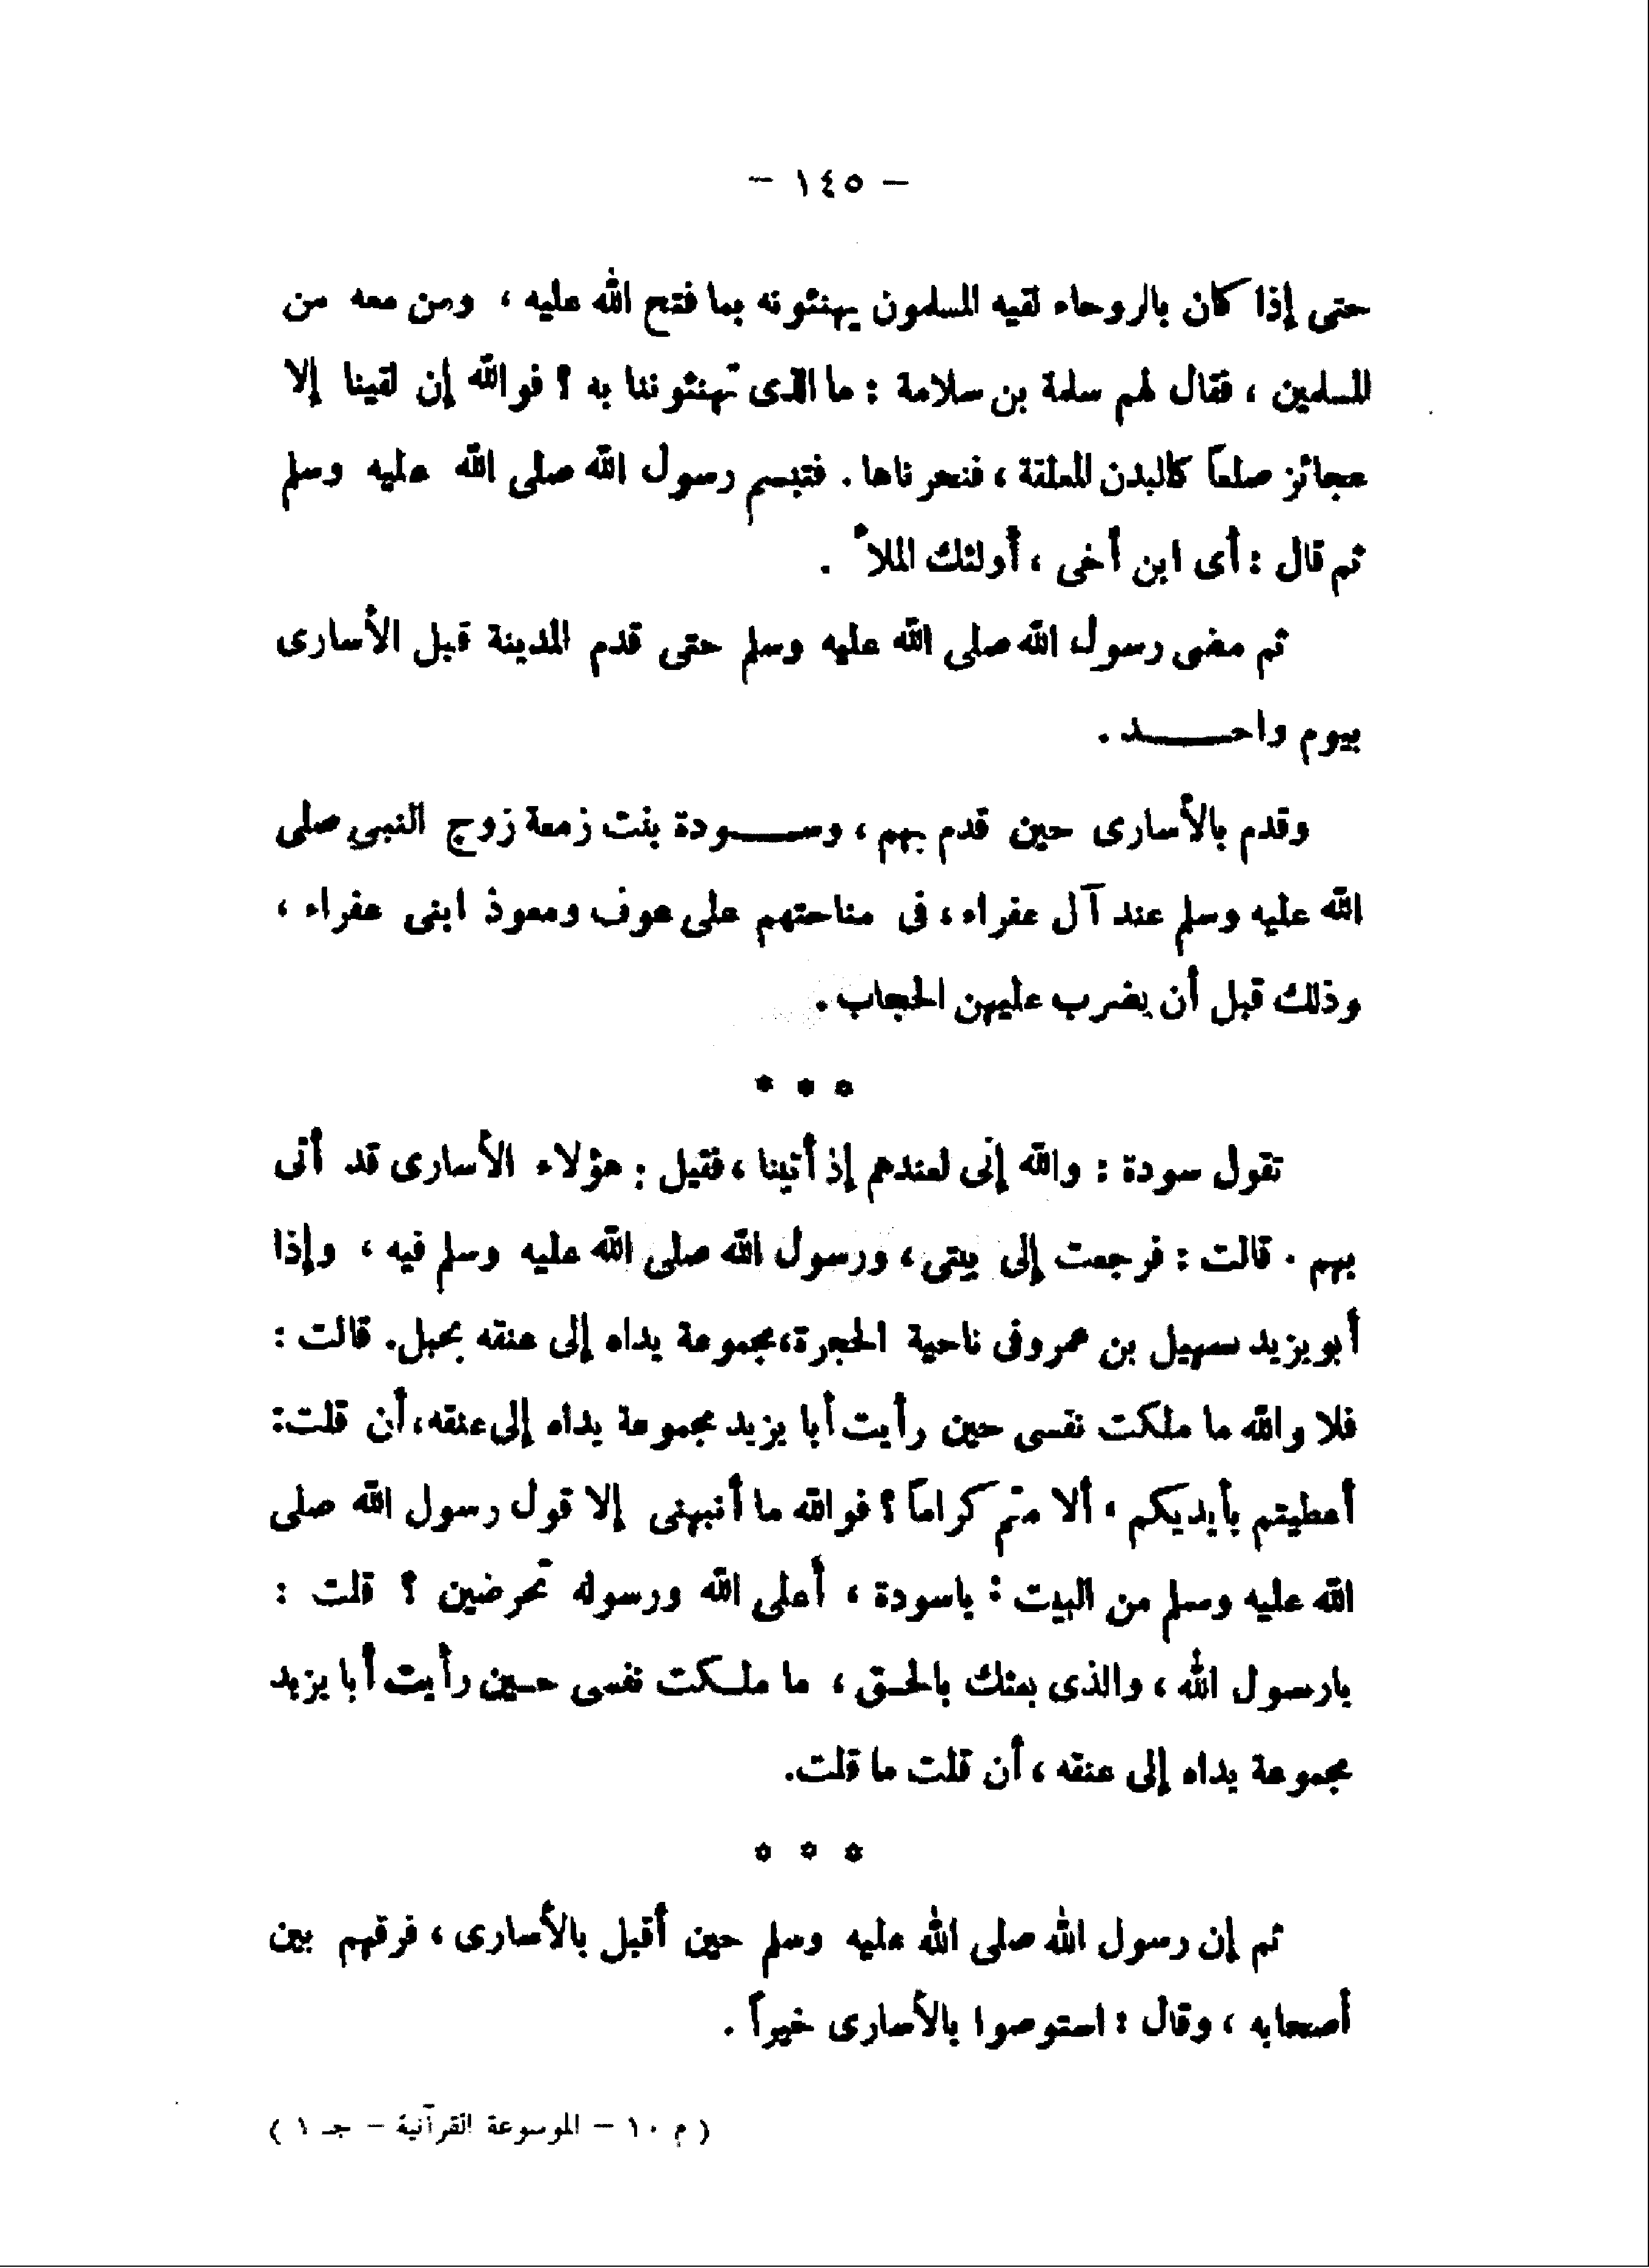 – ١٤٥ –
حتى إذا كان بالروحاء لقيه المسلمون يهنئونه بما فتح الله عليه ، ومن معه من
المسلمين ، فقال لهم سلمة بن سلامة : ما الذى تهنئوننا به ؟ فوالله إن لقينا إلا
عجائز صلعاً كالبدن المعلقة ، فنحرناها . فتبسم رسول الله صلى الله عليه وسلم
ثم قال : أى ابن أخى ، أولئك الملأ .
ثم مضى رسول الله صلى الله عليه وسلم حتى قدم المدينة قبل الأسارى
بيوم واحـــــد .
وقدم بالأسارى حين قدم بهم ، وســــودة بنت زمعة زوج النبى صلى
الله عليه وسلم عند آل عفراء ، فى مناحتهم على عوف ومعوذ ابنى عفراء ،
وذلك قبل أن يضرب عليهن الحجاب .
* * *
تقول سودة : والله إنى لعندهم إذ أتينا ، فقيل : هؤلاء الأسارى قد أتى
بهم . قالت : فرجعت إلى بيتى ، ورسول الله صلى الله عليه وسلم فيه ، وإذا
أبو يزيد سهيل بن عمرو فى ناحية الحجرة ، مجموعة يداه إلى عنقه بحبل . قالت :
فلا والله ما ملكت نفسى حين رأيت أبا يزيد مجموعة يداه إلى عنقه ، أن قلت :
أعطيتم بأيديكم ، ألا متم كراماً ؟ فوالله ما أنبهنى إلا قول رسول الله صلى
الله عليه وسلم من البيت : ياسودة ، أعلى الله ورسوله تحرضين ؟ قلت :
يارسول الله ، والذى بعثك بالحق ، ما ملكت نفسى حين رأيت أبا يزيد
مجموعة يداه إلى عنقه ، أن قلت ما قلت .
* * *
ثم إن رسول الله صلى الله عليه وسلم حين أقبل بالأسارى ، فرقهم بين
أصحابه ، وقال : استوصوا بالأسارى خيراً .
( م ١٠ – الموسوعة القرآنية – جـ ١ )